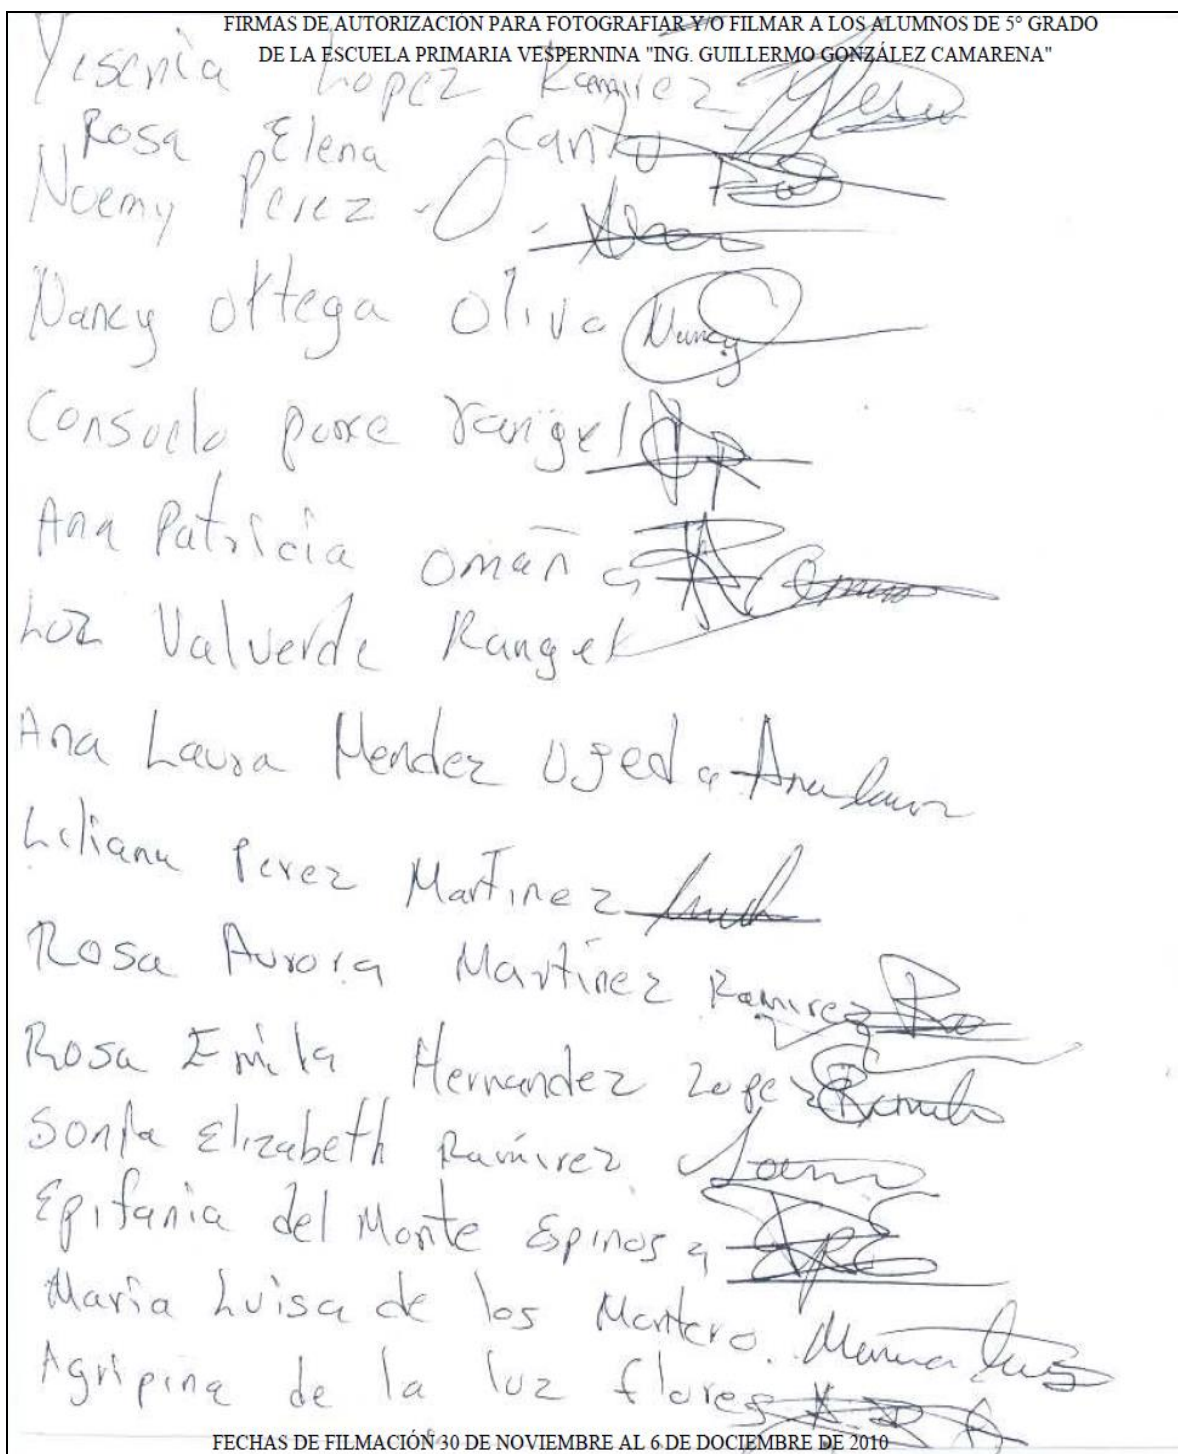 FIRMAS DE AUTORIZACIÓN PARA FOTOGRAFIAR Y/O FILMAR A LOS ALUMNOS DE 5° GRADO
DE LA ESCUELA PRIMARIA VESPERNINA "ING. GUILLERMO GONZÁLEZ CAMARENA"
Yesenia Lopez Ramirez
Rosa Elena Cantu
Noemy Perez J.
Nancy Ortega Oliva Nancy
Consuelo ponce rangel
Ana Patricia Omaña
Luz Valverde Rangel
Ana Laura Mendez Ojeda Ana laura
Liliana Perez Martinez
Rosa Aurora Martinez Ramirez
Rosa Emila Hernandez Lopez
Sonia Elizabeth Ramirez
Epifania del Monte Espinosa
Maria Luisa de los Montero. Maria Luis
Agripina de la luz flores
FECHAS DE FILMACIÓN 30 DE NOVIEMBRE AL 6 DE DOCIEMBRE DE 2010